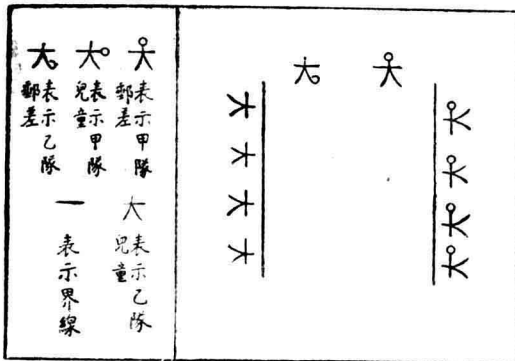 表示甲隊
郵差
表示甲隊
兒童
表示乙隊
郵差
表示乙隊
兒童
表示界線